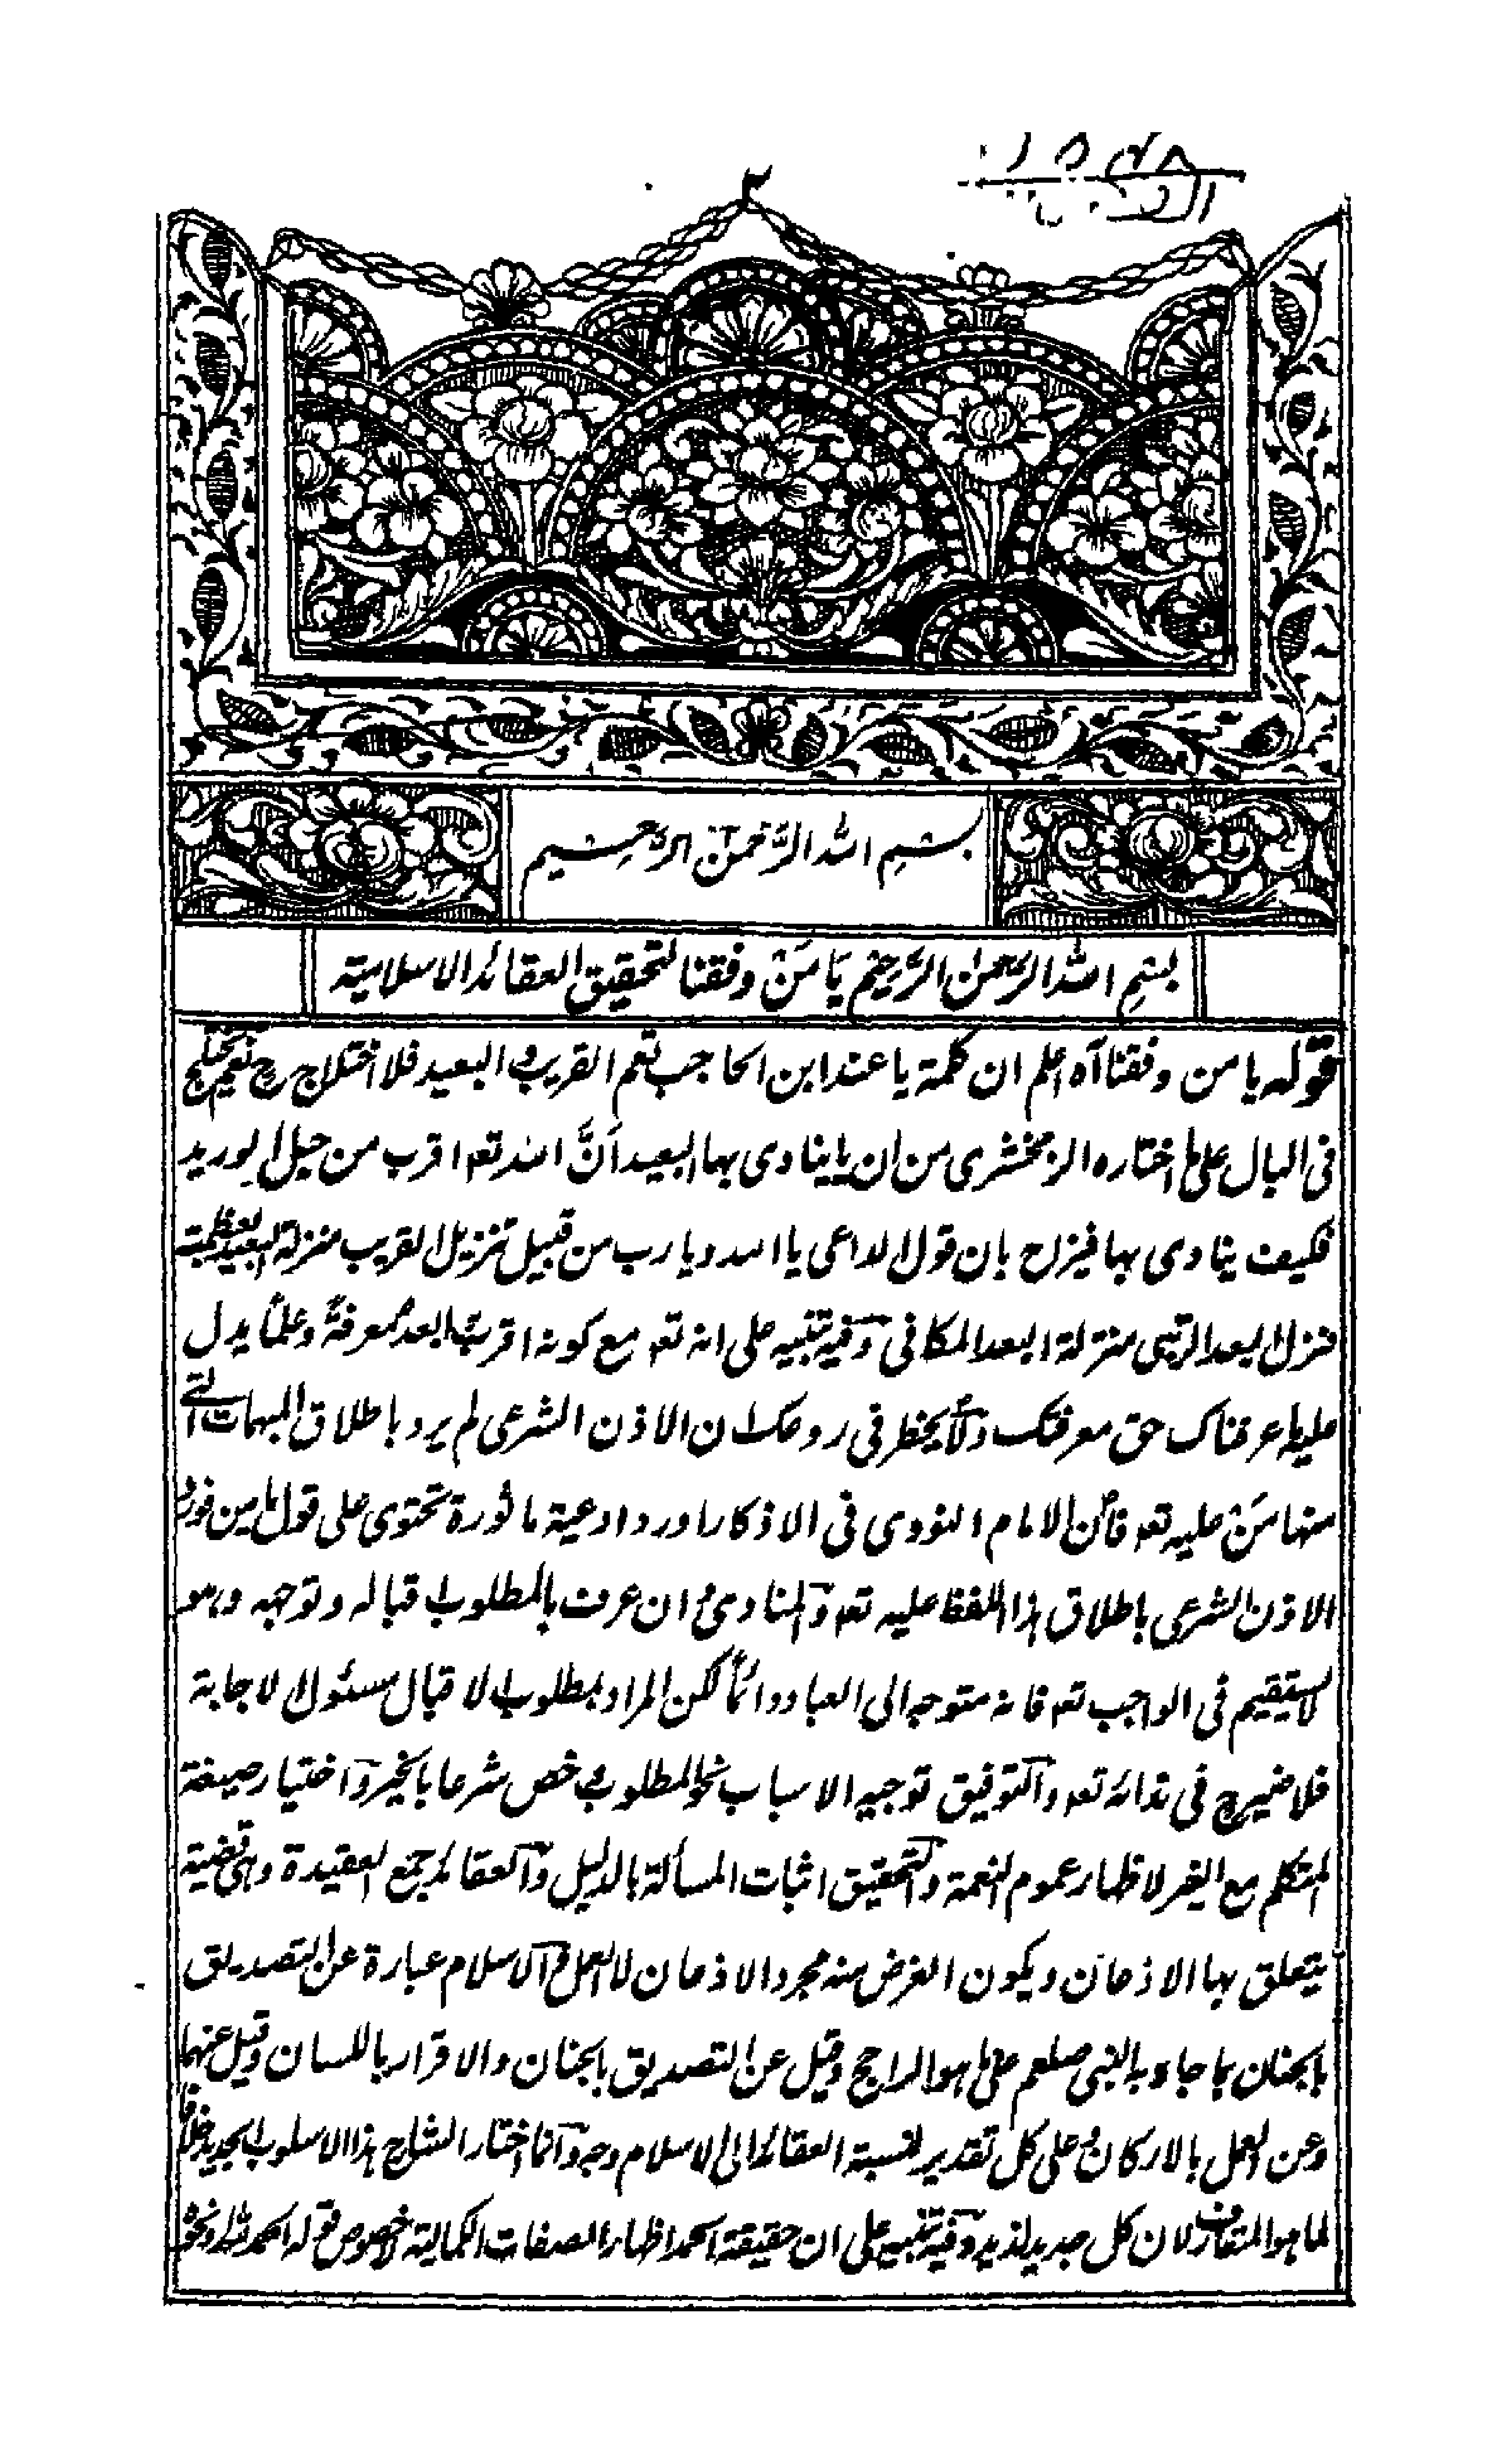 ٢
بسم الله الرحمن الرحيم
بسم الله الرحمن الرحيم يا من وفقنا لتحقيق العقائد الاسلامية
قوله يا من وفقنا آه اعلم ان كلمة يا عند ابن الحاجب تعم القريب والبعيد فلا اختلاج ح نعم يختلج
فى البال على ما اختاره الزمخشرى من ان يا ينادى بها البعيد أنَّ الله تعه اقرب من حبل الوريد
فكيف ينادى بها فيزاح بان قول الداعى يا الله ويا رب من قبيل تنزيل القريب منزلة البعيد لعظمته
فنزل البعد الرتبى منزلة البعد المكانى وفيه تنبيه على انه تعه مع كونه اقرب ابعد معرفةً وعلمًا يدل
عليه ما عرفناك حق معرفتك ولا يخطر فى روعك ان الاذن الشرعى لم يرد باطلاق المبهمات التى
منها مَنْ عليه تعه فان الامام النووى فى الاذكار اورد ادعية ماثورة تحتوى على قول يا من فورد
الاذن الشرعى باطلاق هذا اللفظ عليه تعه والمنادى وان عرف بالمطلوب اقباله وتوجهه وهو
لا يستقيم فى الواجب تعه فانه متوجه الى العباد دائمًا لكن المراد بمطلوب الاقبال مسئول الاجابة
فلا ضير ح فى ندائه تعه والتوفيق توجيه الاسباب نحو المطلوب وخص شرعا بالخير واختيار صيغة
المتكلم مع الغير لاظهار عموم النعمة والتحقيق اثبات المسألة بالدليل والعقائد جمع العقيدة وهى قضية
يتعلق بها الاذعان ويكون الغرض منه مجرد الاذعان لا العمل والاسلام عبارة عن التصديق
بالجنان بما جاء به النبى صلعم على ما هو الراجح وقيل عن التصديق بالجنان والاقرار باللسان وقيل عنهما
وعن العمل بالاركان وعلى كل تقدير لنسبة العقائد الى الاسلام وجه وانما اختار الشارح هذا الاسلوب الجديد خلافا
لما هو المتعارف لان كل جديد لذيذ وفيه تنبيه على ان حقيقة الحمد اظهار الصفات الكمالية لا خصوص قوله الحمد لله ونحوه